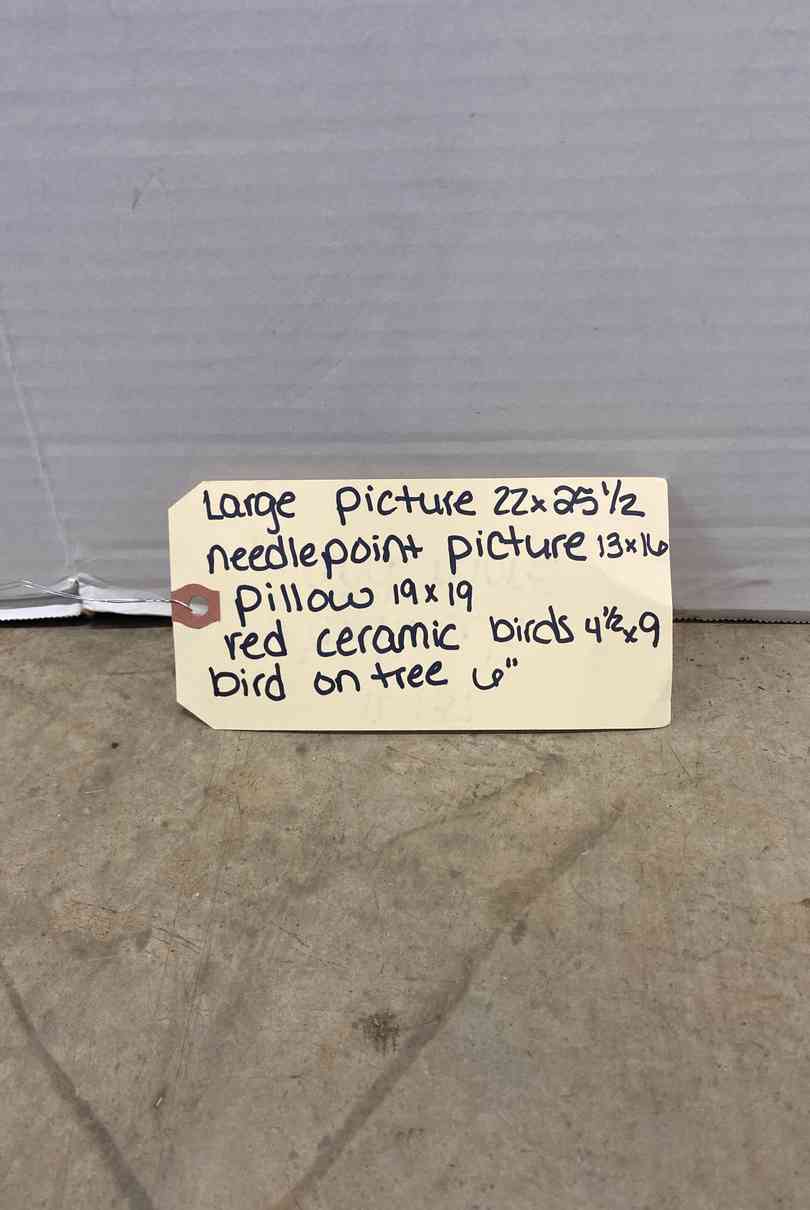 Large picture 22x25 1/2
needlepoint picture 13x16
pillow 19x19
red ceramic birds 4 1/2 x 9
bird on tree 6"